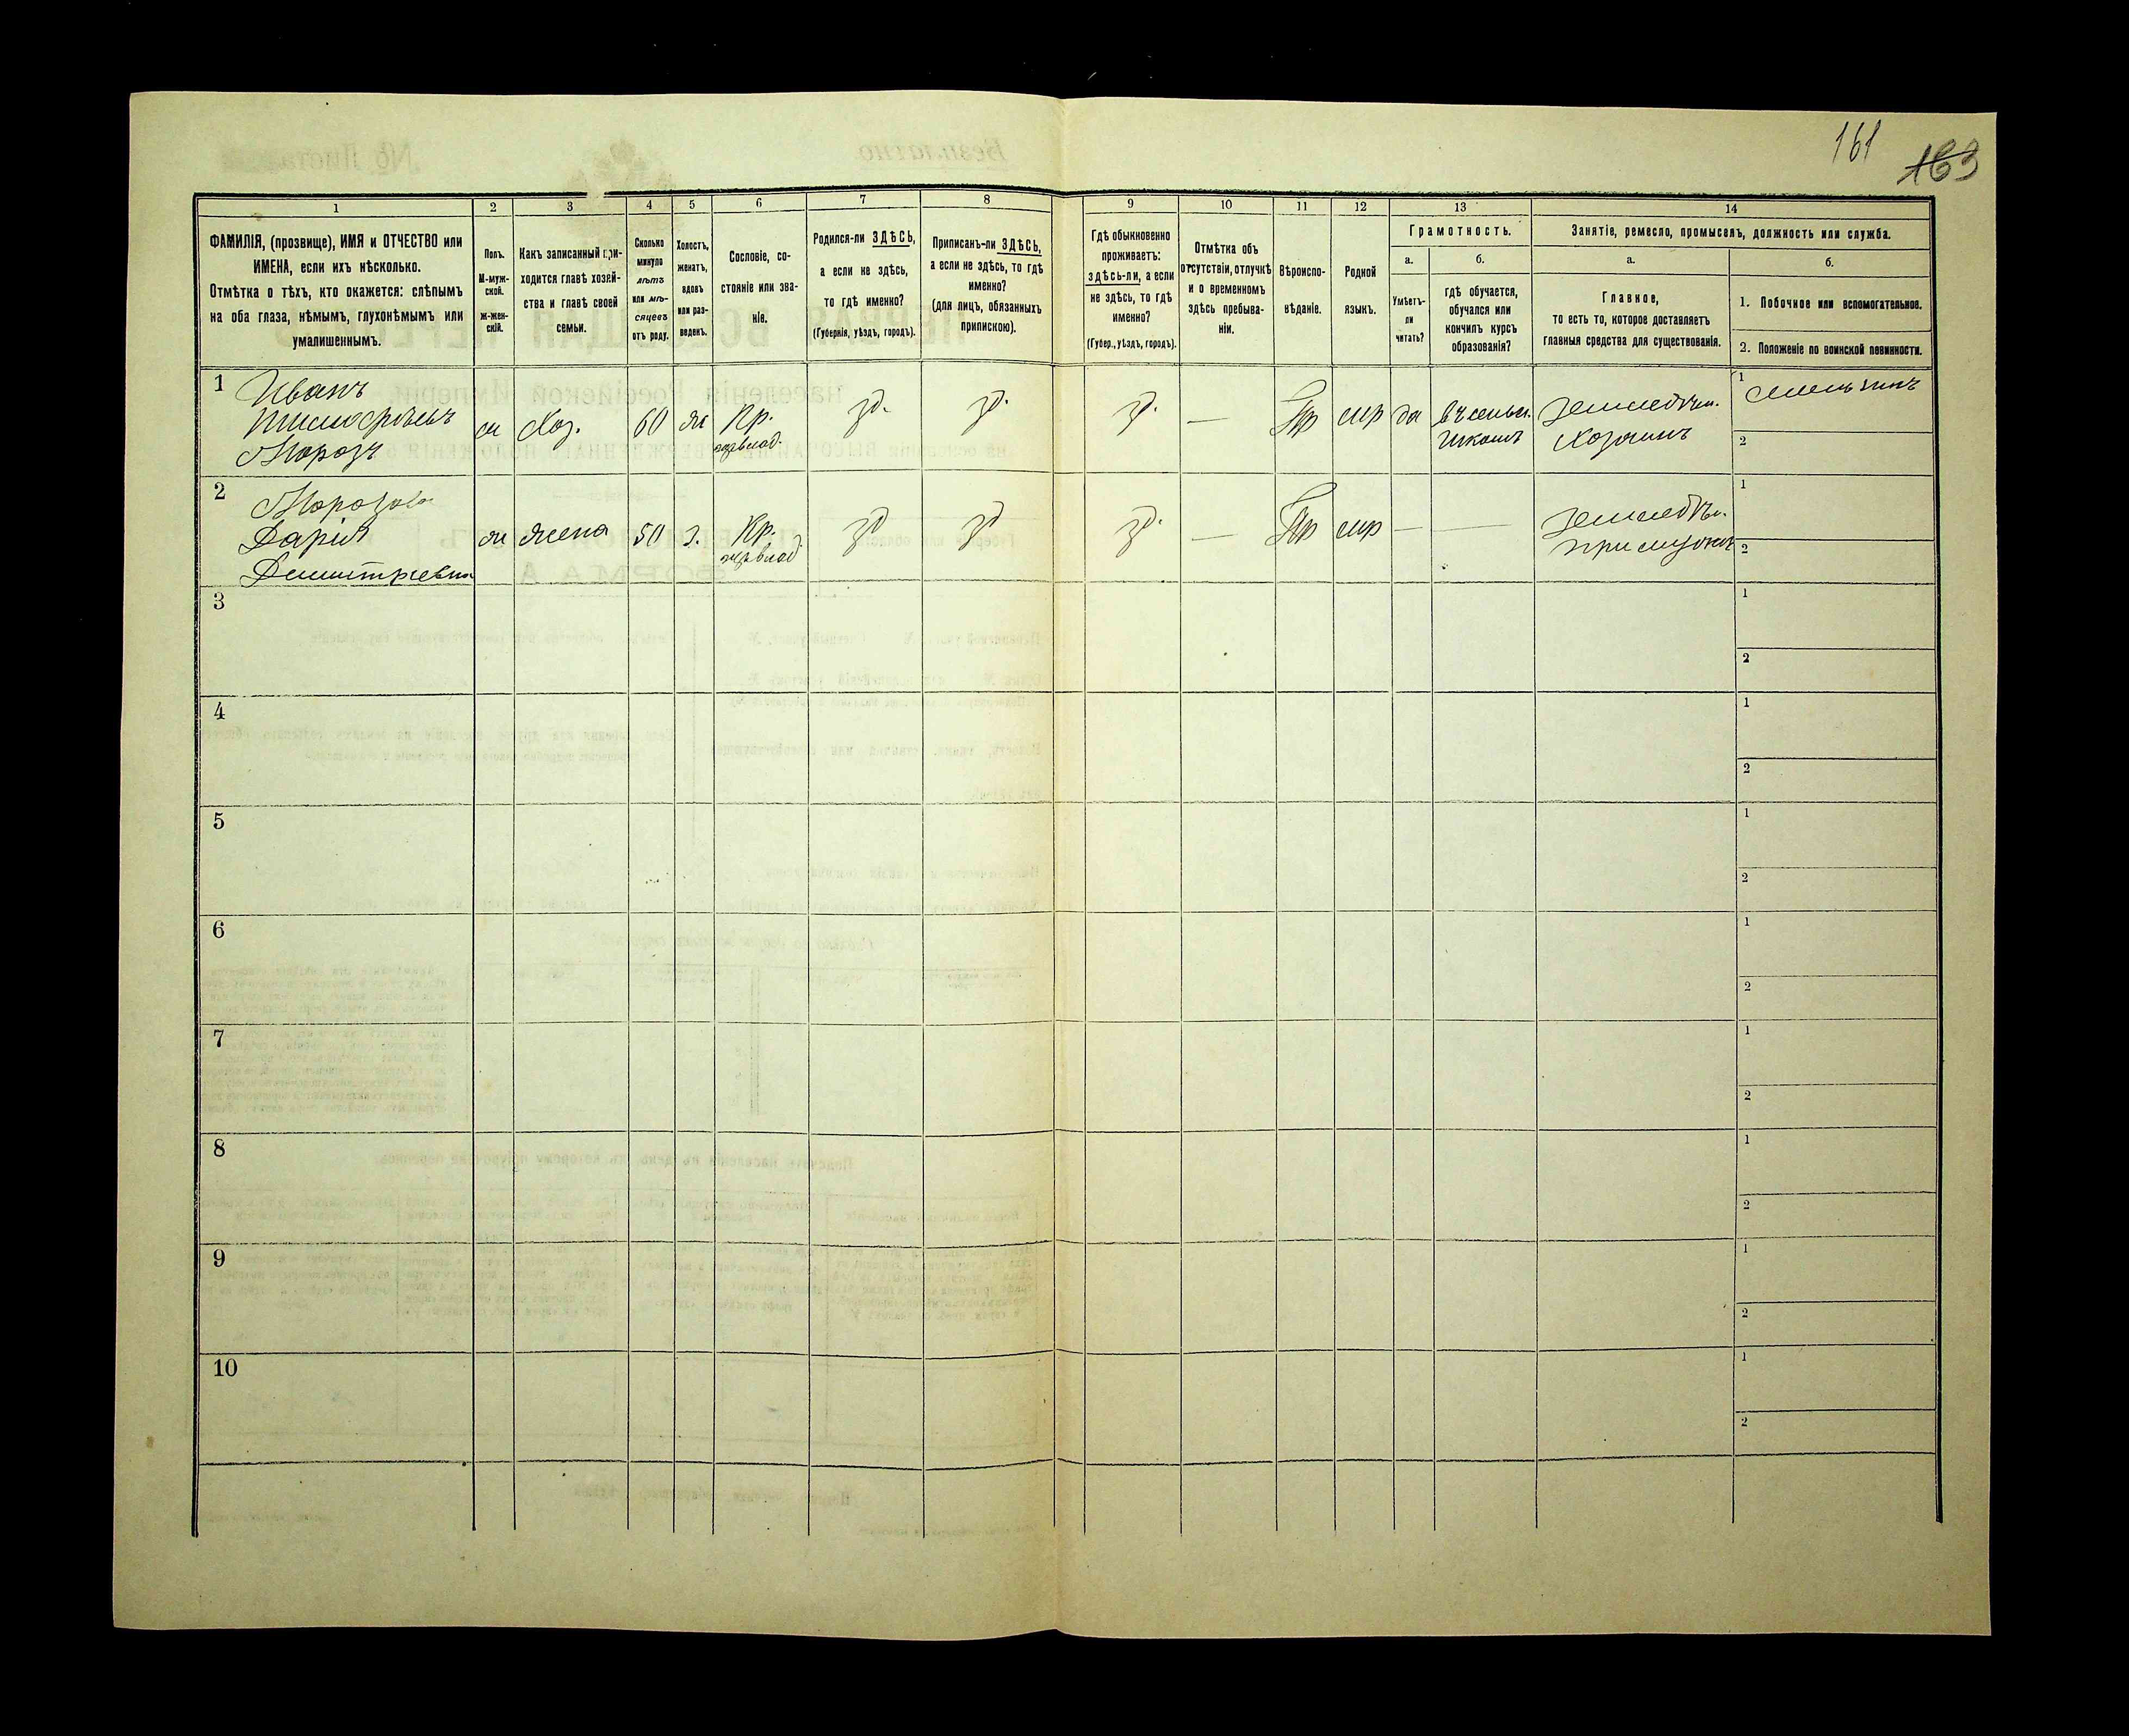 161
163
1 2 3 4 5 6 7 8 9 10 11 12 13 14
ФАМИЛІЯ, (прозвище), ИМЯ и ОТЧЕСТВО или
ИМЕНА, если ихъ нѣсколько.
Отмѣтка о тѣхъ, кто окажется: слѣпымъ
на оба глаза, нѣмымъ, глухонѣмымъ или
умалишеннымъ.
Полъ.
М-муж-
ской.
Ж-жен-
скій.
Какъ записанный при-
ходится главѣ хозяй-
ства и главѣ своей
семьи.
Сколько
минуло
лѣтъ
или мѣ-
сяцевъ
отъ роду.
Холостъ,
женатъ,
вдовъ
или раз-
веденъ.
Сословіе, со-
стояніе или зва-
ніе.
Родился-ли ЗДѢСЬ,
а если не здѣсь,
то гдѣ именно?
(Губернія, уѣздъ, городъ).
Приписанъ-ли ЗДѢСЬ,
а если не здѣсь, то гдѣ
именно?
(для лицъ, обязанныхъ
припискою).
Гдѣ обыкновенно
проживаетъ:
здѣсь-ли, а если
не здѣсь, то гдѣ
именно?
(Губер., уѣздъ, городъ).
Отмѣтка объ
отсутствіи, отлучкѣ
и о временномъ
здѣсь пребыва-
ніи.
Вѣроиспо-
вѣданіе.
Родной
языкъ.
Грамотность.
а.
Умѣетъ-
ли
читать?
б.
гдѣ обучается,
обучался или
кончилъ курсъ
образованія?
Занятіе, ремесло, промыселъ, должность или служба.
а.
Главное,
то есть то, которое доставляетъ
главныя средства для существованія.
б.
1. Побочное или вспомогательное.
2. Положеніе по воинской повинности.
1 Иванъ
Тимофѣевъ
Морозъ
м Хоз. 60 ж Кр.
зд. зд. зд. — Пр мр да въ сельск.
школѣ
земледѣл.
Хозяинъ
1 мельникъ
2
2 Морозова
Дарія
Димитріевна
ж жена 50 з. Кр.
зд зд зд. — Пр мр — —
земледѣл.
при мужѣ
1
2
3
1
2
4
1
2
5
1
2
6
1
2
7
1
2
8
1
2
9
1
2
10
1
2